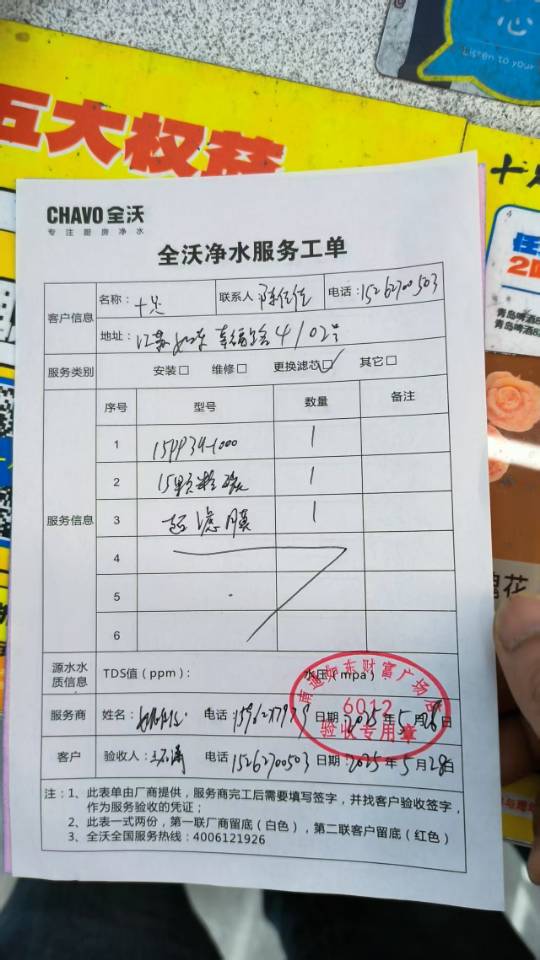 心
Listen to your
五大权益
CHAVO 全沃
专注厨房净水
全沃净水服务工单
客户信息 名称： 十足 联系人 陈佳佳 电话：15262700503
地址： 江苏如东 幸福路4102号
服务类别 安装□ 维修□ 更换滤芯□✓ 其它□
服务信息 序号 型号 数量 备注
1 15PP34-1000 1
2 15颗粒碳 1
3 超滤膜 1
4
5
6
源水水质信息 TDS值（ppm）： 水压（mpa）
服务商 姓名： 电话 日期：2025年5月28日
客户 验收人： 电话 15262700503 日期：2025年5月28日
南通如东财富广场店
6012
验收专用章
注：1、此表单由厂商提供，服务商完工后需要填写签字，并找客户验收签字，
作为服务验收的凭证；
2、此表一式两份，第一联厂商留底（白色），第二联客户留底（红色）
3、全沃全国服务热线：4006121926
十足
青岛啤酒
青岛啤酒
花